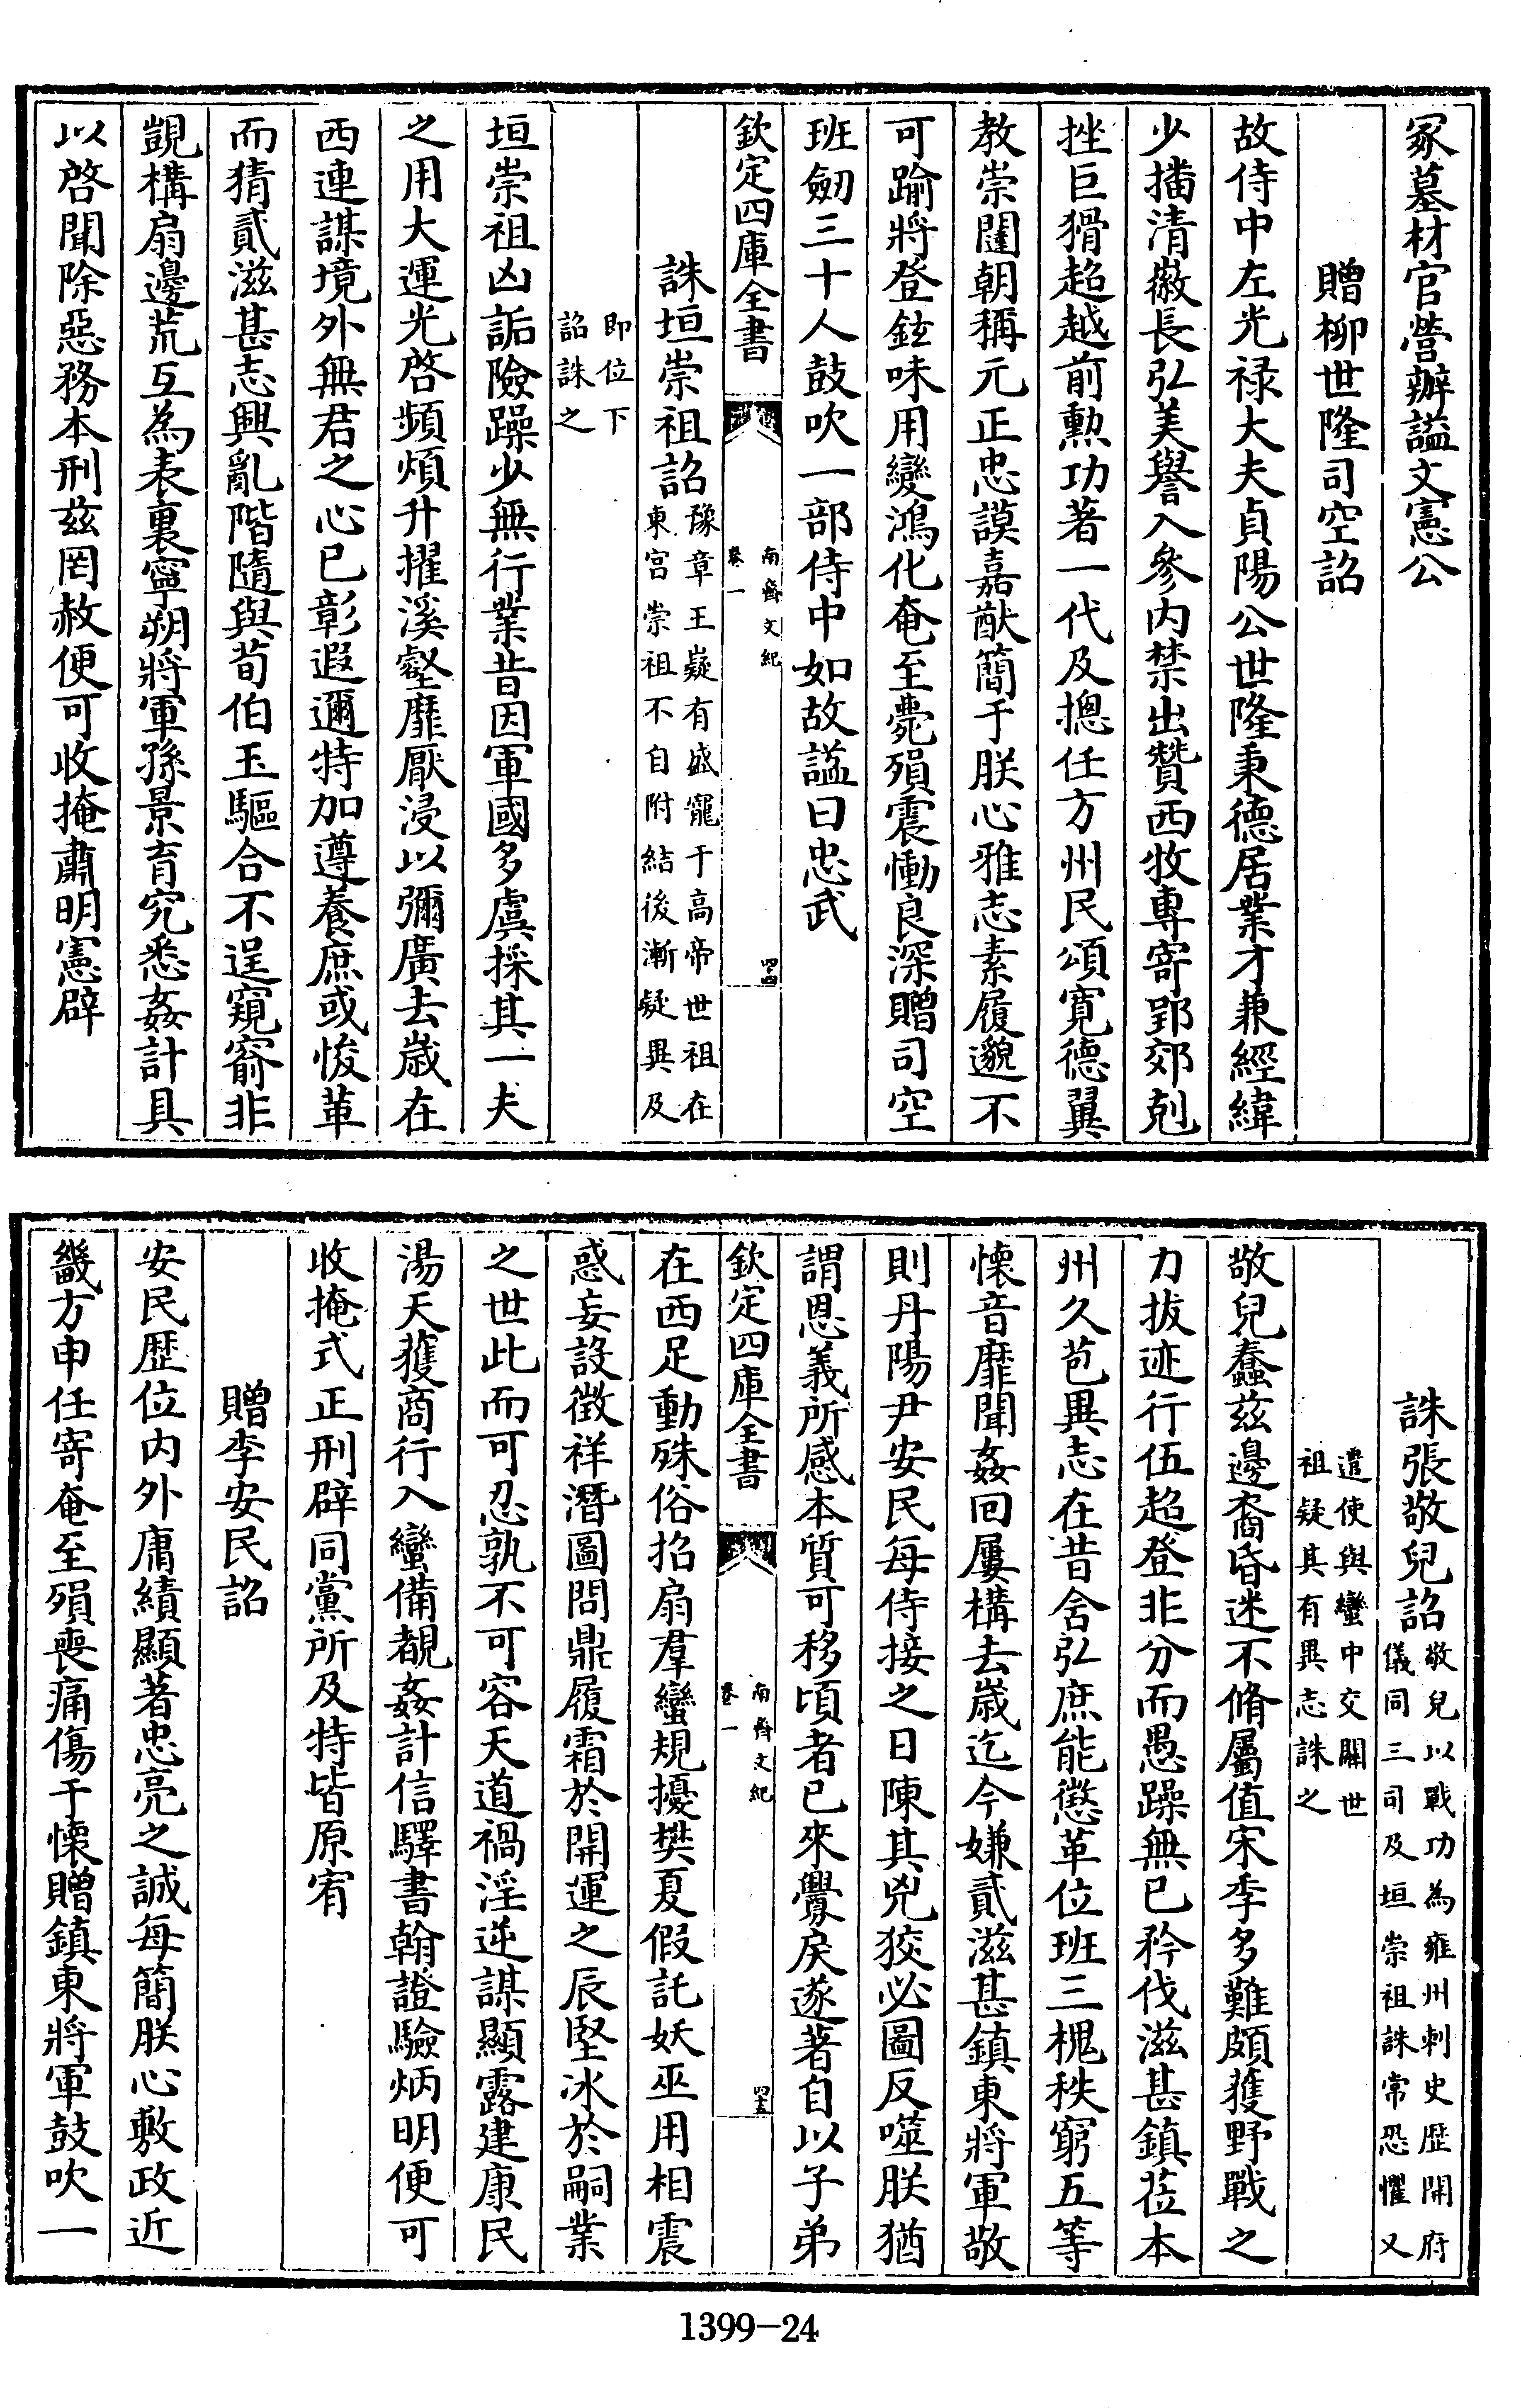 冢墓材官營辦謚文憲公
贈柳世隆司空詔
故侍中左光禄大夫貞陽公世隆秉德居業才兼經緯
少播清徽長弘美譽入參内禁出贊西牧專寄郢郊剋
挫巨猾超越前勲功著一代及摠任方州民頌寛德翼
教崇闥朝稱元正忠謨嘉猷簡于朕心雅志素履邈不
可踰將登鉉味用變鴻化奄至薨殞震慟良深贈司空
班劒三十人鼓吹一部侍中如故謚曰忠武
欽定四庫全書
南齊文紀
卷一
四十四
誅垣崇祖詔
豫章王嶷有盛寵于高帝世祖在
東宫崇祖不自附結後漸疑異及
即位下
詔誅之
垣崇祖凶詬險躁少無行業昔因軍國多虞採其一夫
之用大運光啓頻煩升擢溪壑靡厭浸以彌廣去歲在
西連謀境外無君之心已彰遐邇特加遵養庶或悛革
而猜貳滋甚志興亂階隨與荀伯玉驅合不逞窺窬非
覬構扇邊荒互為表裏寧朔將軍孫景育究悉姦計具
以啓聞除惡務本刑兹罔赦便可收掩肅明憲辟
誅張敬兒詔
敬兒以戰功為雍州刺史歴開府
儀同三司及垣崇祖誅常恐懼又
遣使與蠻中交關世
祖疑其有異志誅之
敬兒蠢兹邊裔昏迷不脩屬值宋季多難頗獲野戰之
力拔迹行伍超登非分而愚躁無已矜伐滋甚鎮莅本
州久苞異志在昔含弘庶能懲革位班三槐秩窮五等
懷音靡聞姦回屢構去歲迄今嫌貳滋甚鎮東將軍敬
則丹陽尹安民每侍接之日陳其兇狡必圖反噬朕猶
謂恩義所感本質可移頃者已來釁戾遂著自以子弟
欽定四庫全書
南齊文紀
卷一
四十五
在西足動殊俗招扇羣蠻規擾樊夏假託妖巫用相震
惑妄設徴祥潛圖問鼎履霜於開運之辰堅冰於嗣業
之世此而可忍孰不可容天道禍淫逆謀顯露建康民
湯天獲商行入蠻備覩姦計信驛書翰證驗炳明便可
收掩式正刑辟同黨所及特皆原宥
贈李安民詔
安民歴位内外庸績顯著忠亮之誠每簡朕心敷政近
畿方申任寄奄至殞喪痛傷于懷贈鎮東將軍鼓吹一
1399-24